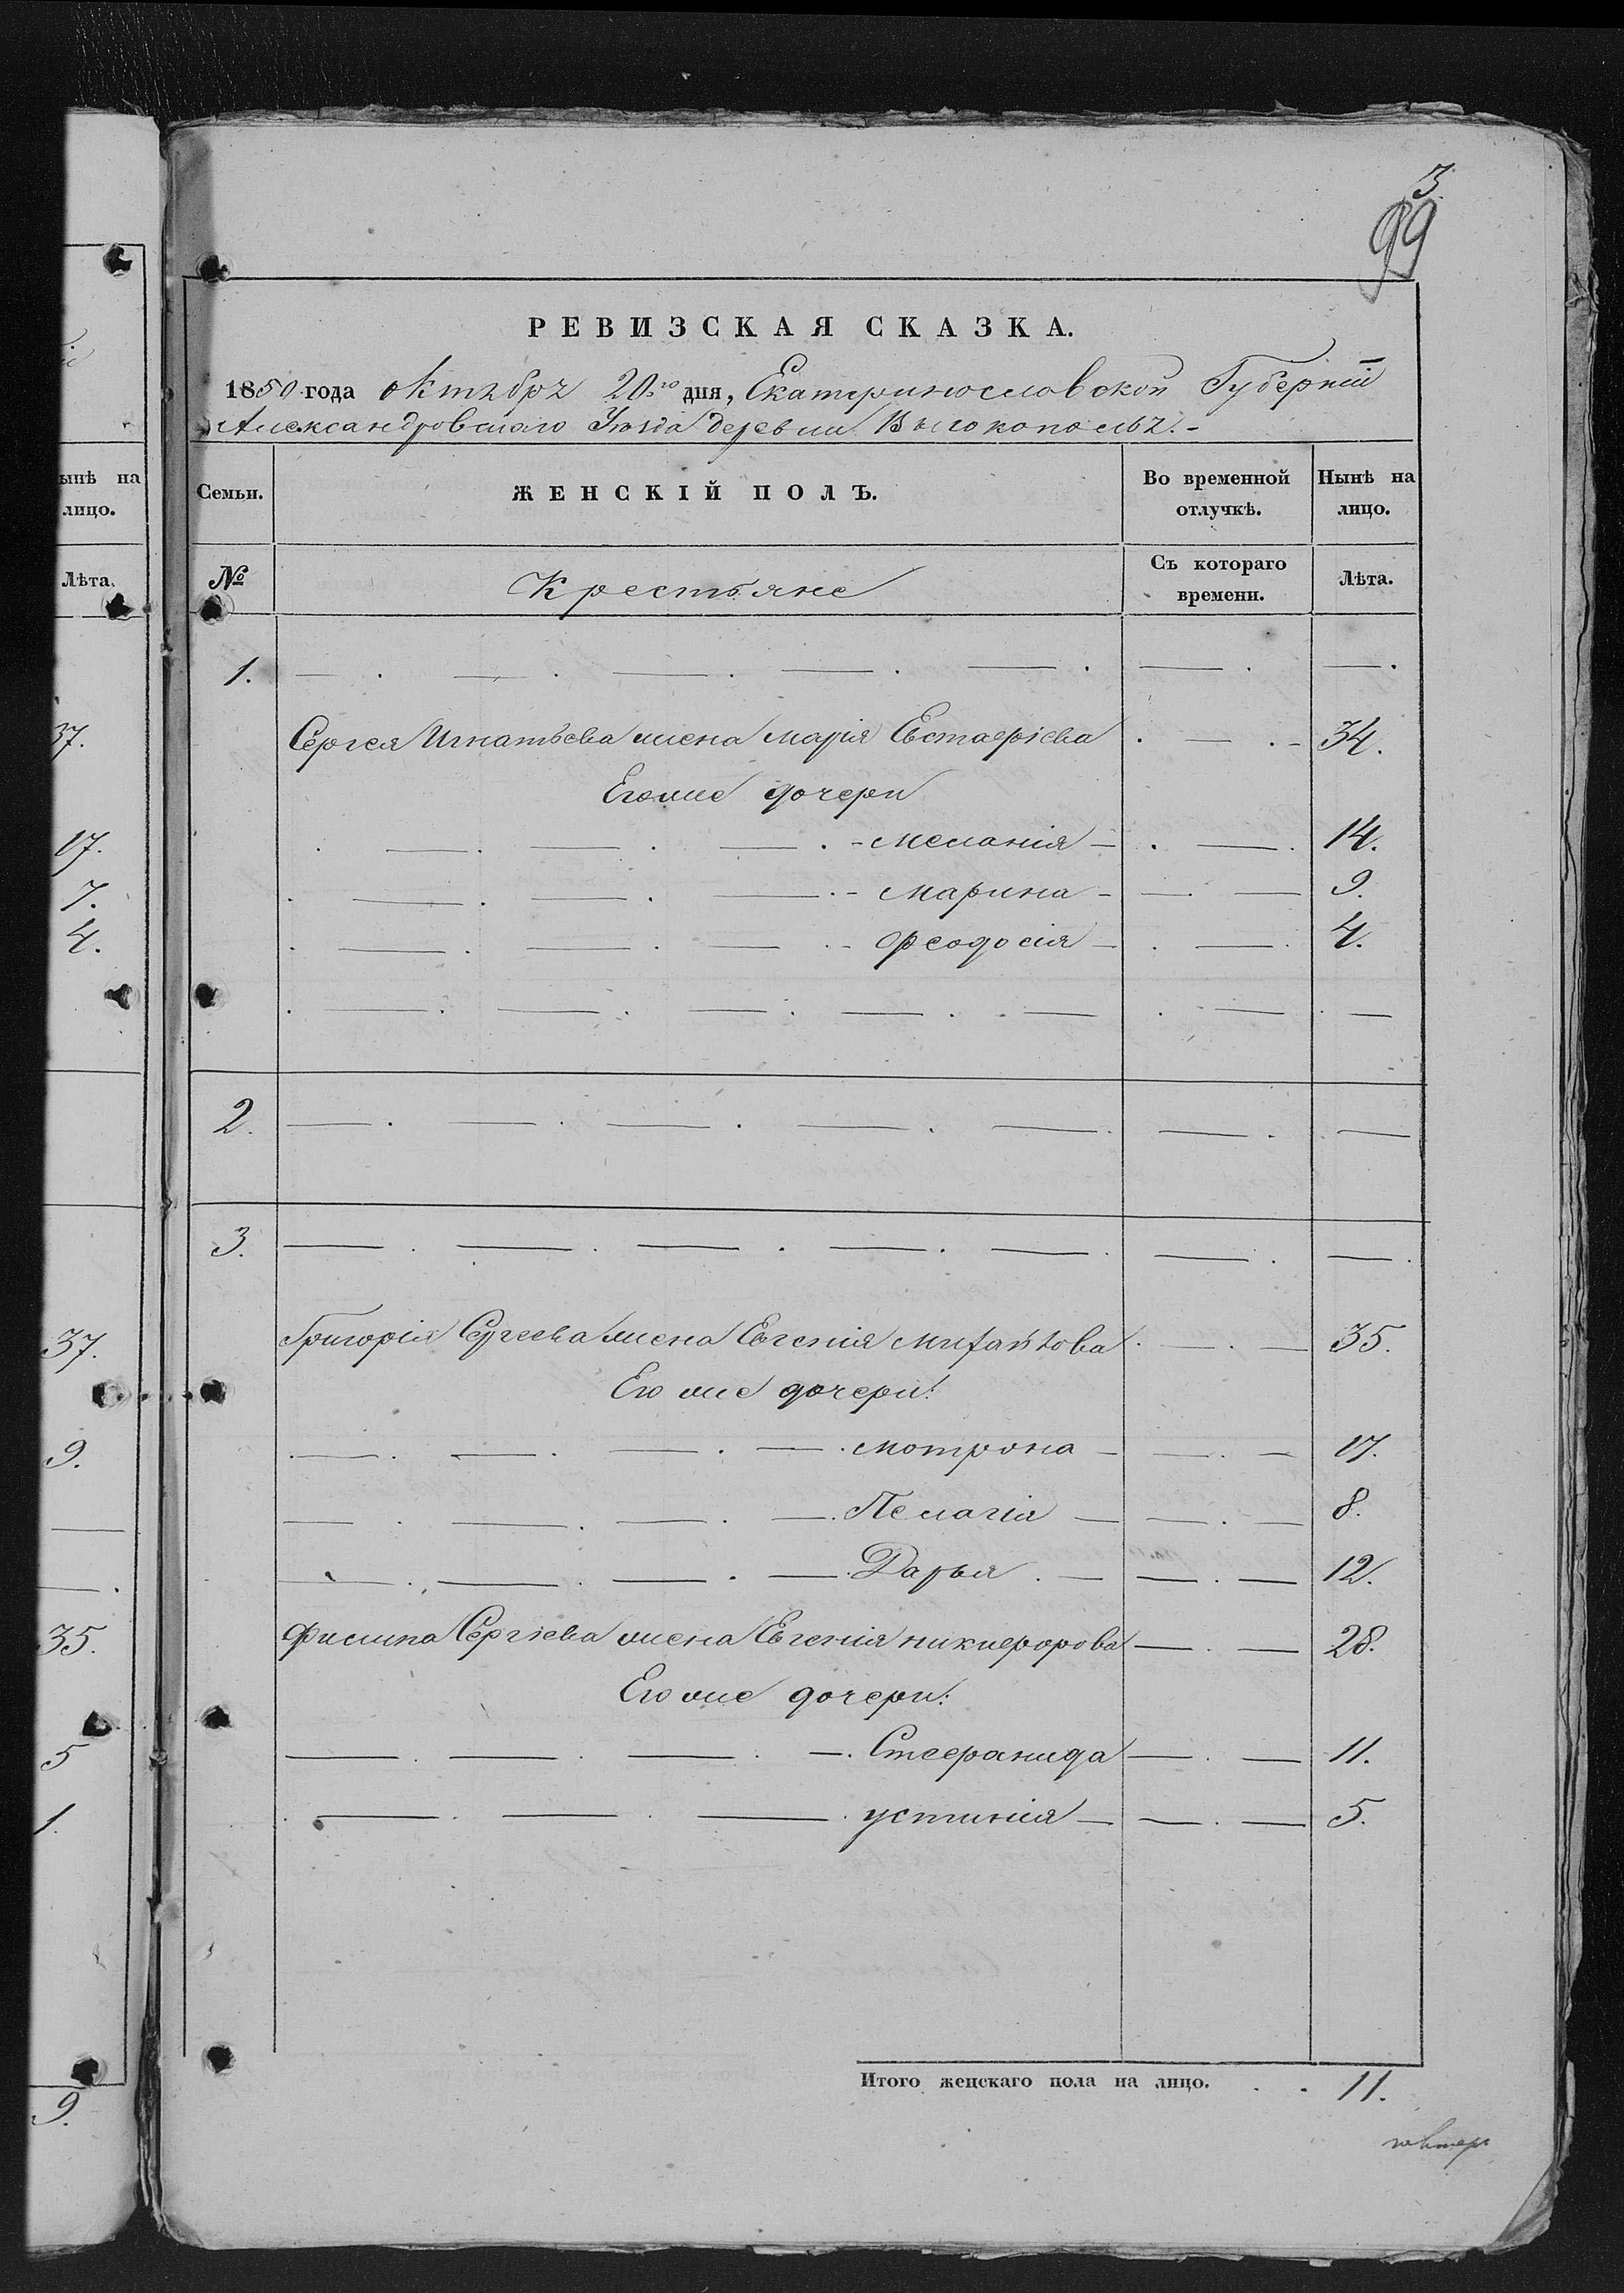 3.
99
РЕВИЗСКАЯ СКАЗКА.
1850 года октября 20го дня, Екатеринославской Губерніи
Александровскаго Уезда деревни Высокополья.-
ынѣ на
лицо.
Лѣта.
37.
17.
7.
4.
37.
9.
35.
5
1.
9.
Семьи. ЖЕНСКІЙ ПОЛЪ. Во временной отлучкѣ. Нынѣ на лицо.
№ Крестьяне Съ котораго времени. Лѣта.
1.
Сергея Игнатьева жена Марія Евстафіева 34.
Его же дочери
Меланія 14.
Марина 9.
Феодосія 4.
2.
3.
Григорія Сергеева жена Евгенія Михайлова 35.
Его же дочери:
Мотрона 17.
Пелагія 8.
Дарья 12.
Филипа Сергіева жена Евгенія Никифорова 28.
Его же дочери:
Стефанида 11.
Устинія 5.
Итого женскаго пола на лицо. 11.